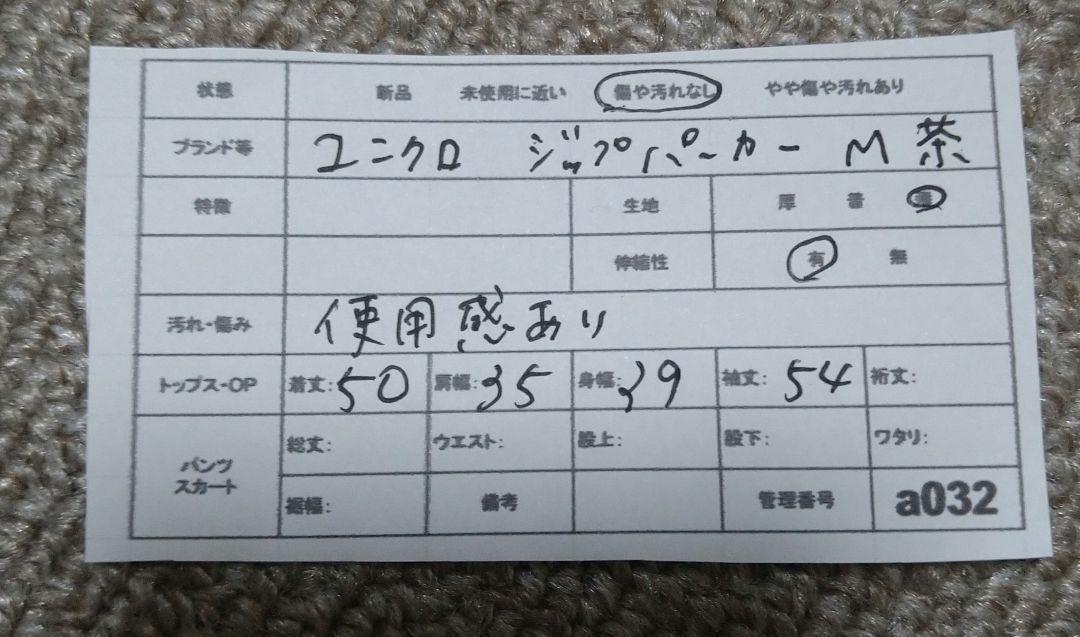 状態 新品 未使用に近い 傷や汚れなし やや傷や汚れあり
ブランド等 ユニクロ ジップパーカー M 茶
特徴 生地 厚 普 薄
伸縮性 有 無
汚れ・傷み 使用感あり
トップス・OP 着丈:50 肩幅:35 身幅:39 袖丈:54 裄丈:
パンツ スカート 総丈: ウエスト: 股上: 股下: ワタリ:
裾幅: 備考 管理番号 a032